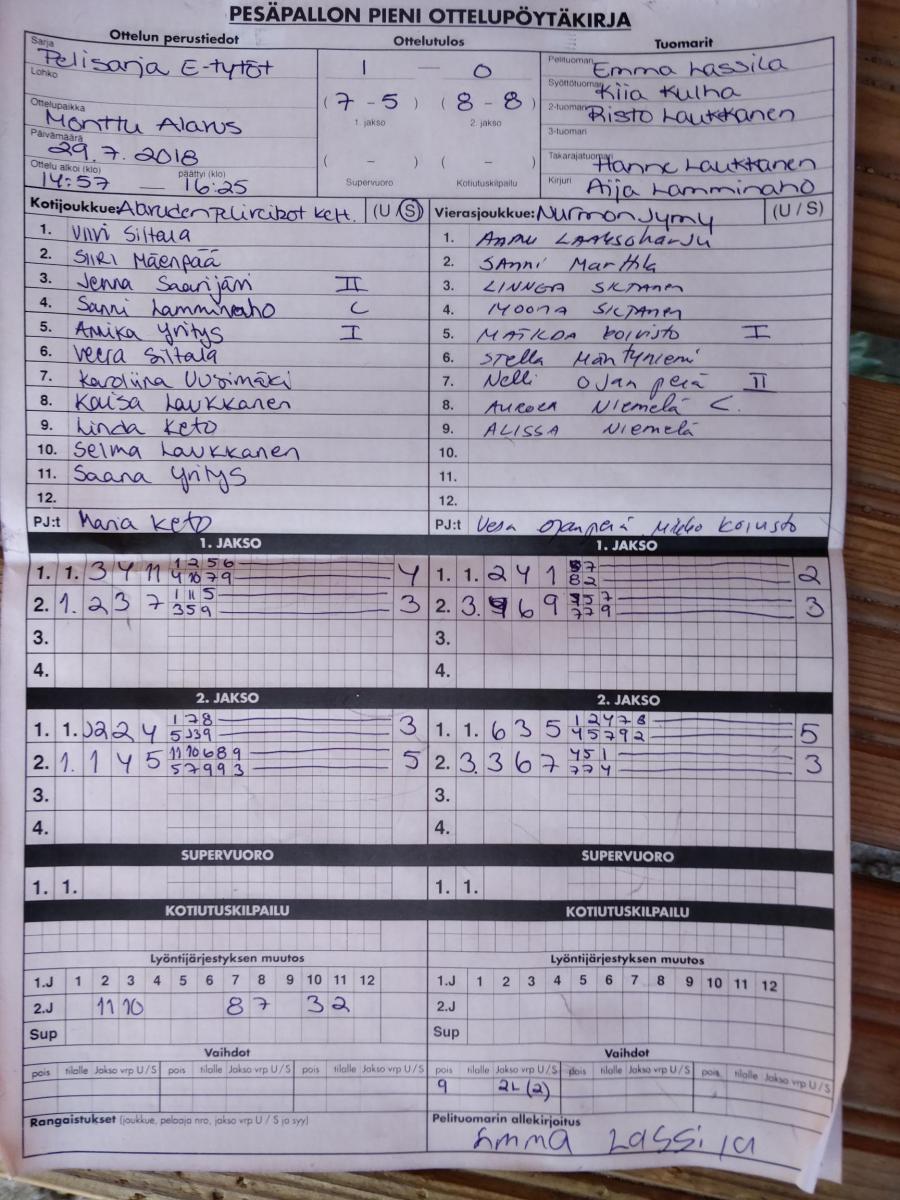 PESÄPALLON PIENI OTTELUPÖYTÄKIRJA
Ottelun perustiedot Ottelutulos Tuomarit
Sarja Pelisarja E-tytöt
Lohko
Ottelupaikka Monttu Alavus
Päivämäärä 29.7.2018
Ottelu alkoi (klo) 14:57 — päättyi (klo) 16:25
1 — 0
(7 - 5) (8 - 8)
1. jakso 2. jakso
( - ) ( - )
Supervuoro Kotiutuskilpailu
Pelituomari Emma Lassila
Syöttötuomari Kiia Kulha
2-tuomari Risto Laukkanen
3-tuomari
Takarajatuomari Hanne Laukkanen
Kirjuri Aija Lamminaho
Kotijoukkue: (U / S)
1. Viivi Siltala
2. SIIRI Mäenpää
3. Jenna Saarijärvi II
4. Sanni Lamminaho C
5. Annika Yritys I
6. Veera Siltala
7. Karoliina Uusimäki
8. Kaisa Laukkanen
9. Linda Keto
10. Selma Laukkanen
11. Saana Yritys
12.
PJ:t Maria Keto
Vierasjoukkue: Nurmon Jymy (U / S)
1. LAAKSOHARJU
2. SANNI Marttila
3. LINNEA SILTANEN
4. MOONA SILTANEN
5. MATILDA KOIVISTO I
6. Stella Mäntyniemi
7. Nelli Ojanperä II
8. AURORA NIEMELÄ C.
9. ALISSA NIEMELÄ
10.
11.
12.
PJ:t Vesa Ojanperä Mikko Koivisto
1. JAKSO 1. JAKSO
1. 1. 3 4 11 1 2 5 6 4
4 10 7 9
2. 1. 2 3 7 1 11 5 3
3 5 9
3.
4.
1. 1. 2 4 1 7 2
8 2
2. 3. 6 9 5 7 3
7 7 9
3.
4.
2. JAKSO 2. JAKSO
1. 1. 2 2 4 1 7 8 3
2. 1. 1 4 5 11 10 6 8 9 5
5 7 9 9 3
3.
4.
1. 1. 6 3 5 1 2 4 7 8 5
4 5 7 9 2
2. 3. 3 6 7 4 5 1 3
7 7 4
3.
4.
SUPERVUORO SUPERVUORO
1. 1. 1. 1.
KOTIUTUSKILPAILU KOTIUTUSKILPAILU
Lyöntijärjestyksen muutos Lyöntijärjestyksen muutos
1.J 1 2 3 4 5 6 7 8 9 10 11 12
2.J 11 10 8 7 3 2
Sup
1.J 1 2 3 4 5 6 7 8 9 10 11 12
2.J
Sup
Vaihdot Vaihdot
pois tilalle Jakso vrp U / S pois tilalle Jakso vrp U / S pois tilalle Jakso vrp U / S
pois tilalle Jakso vrp U / S pois tilalle Jakso vrp U / S pois tilalle Jakso vrp U / S
9 2L (2)
Rangaistukset (joukkue, pelaaja nro, jakso vrp U / S ja syy)
Pelituomarin allekirjoitus
Emma LASSILA